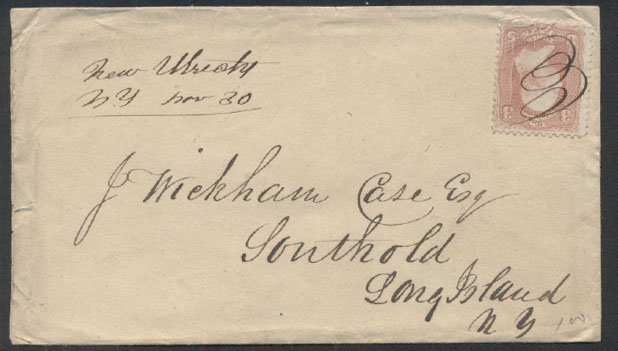 New Utrecht
N.Y Nov 30
J Wickham Case Esq
Southold
Long Island
N Y